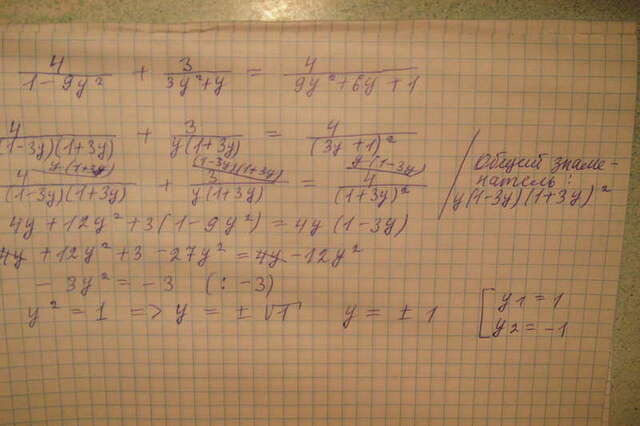 4/(1-9y²) + 3/(3y²+y) = 4/(9y²+6y+1)
4/((1-3y)(1+3y)) + 3/(y(1+3y)) = 4/(3y+1)²
y(1+3y) (1-3y)(1+3y) y(1-3y)
4/((1-3y)(1+3y)) + 3/(y(1+3y)) = 4/(1+3y)²
Общий знаме-
натель:
y(1-3y)(1+3y)²
4y+12y²+3(1-9y²)=4y(1-3y)
4y+12y²+3-27y²=4y-12y²
-3y²=-3 (:-3)
y²=1 => y=±√1 y=±1
[y1=1
y2=-1